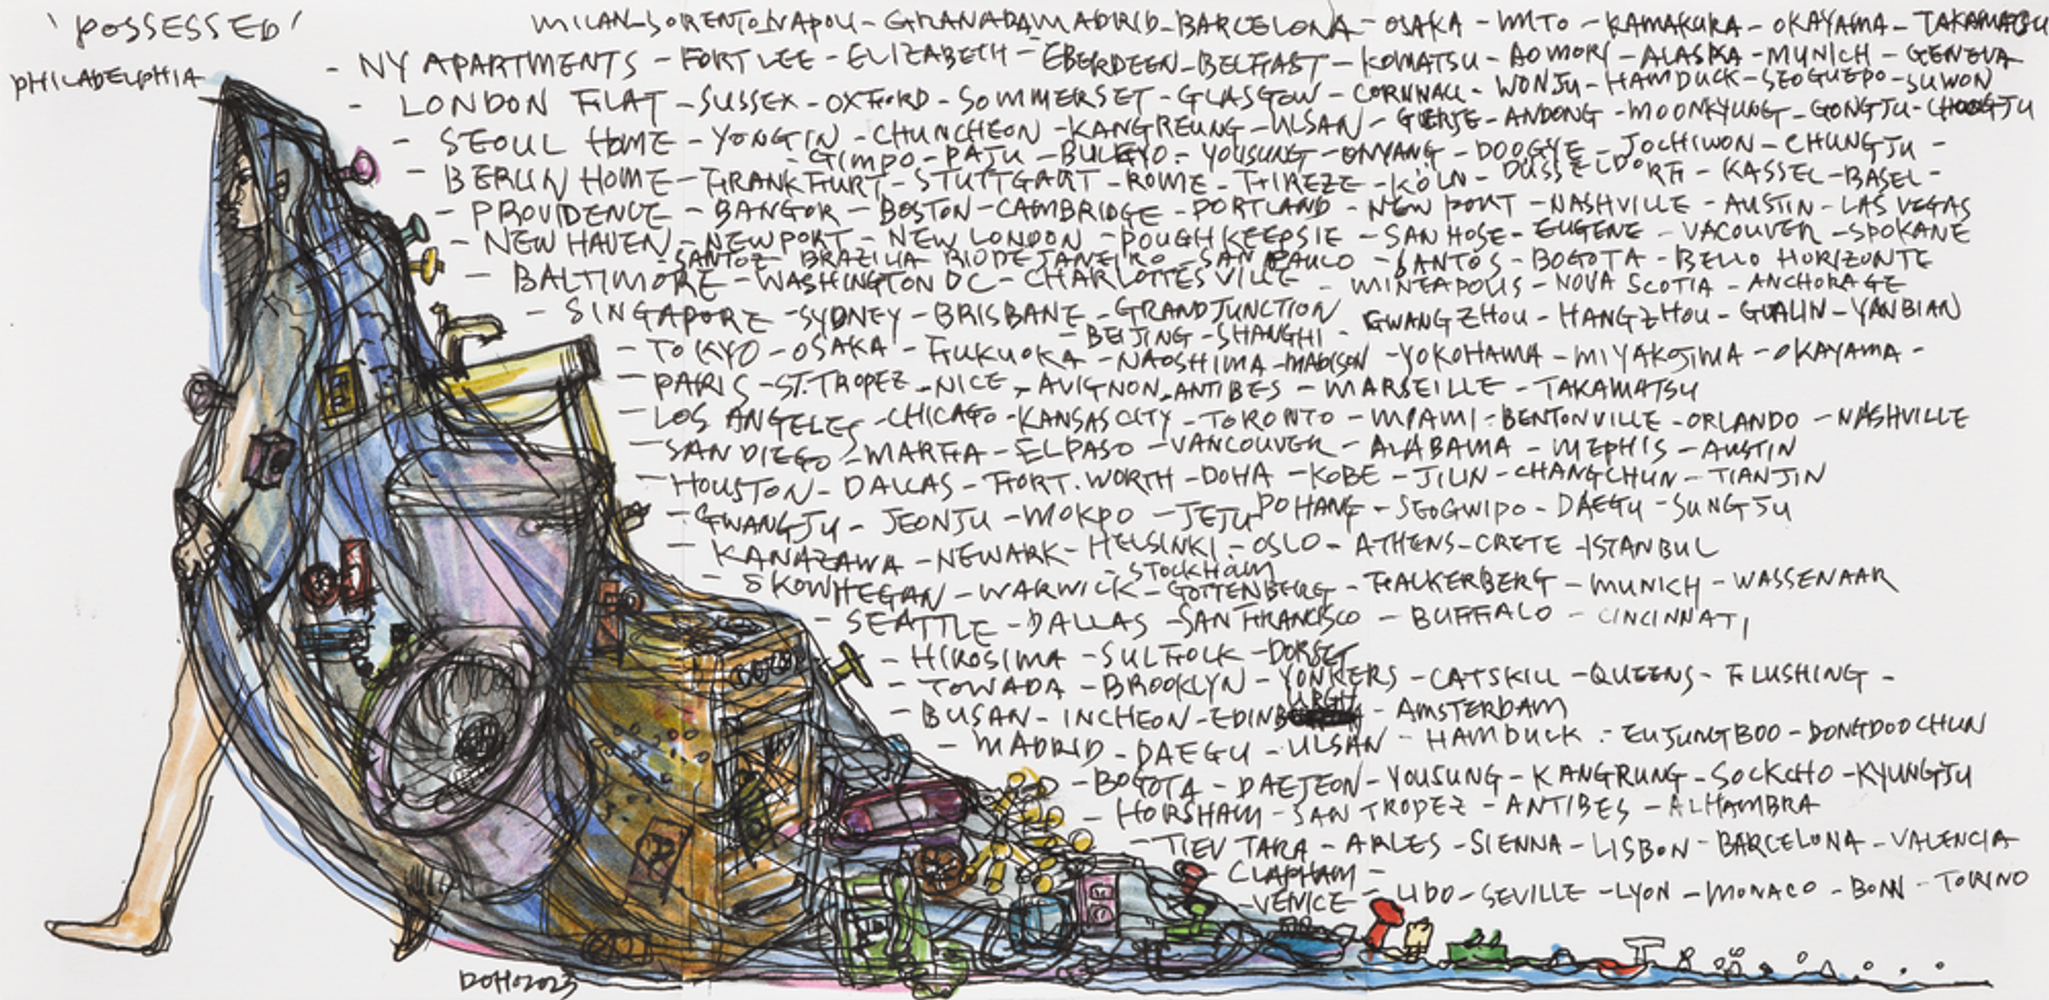 'POSSESSED'
MILAN-SORENTO-NAPOLI-GRANADA-MADRID-BARCELONA-OSAKA-KAMAKURA-OKAYAMA-TAKAMATSU
PHILADELPHIA
-NY APARTMENTS-FORT LEE-ELIZABETH-EBERDEEN-BELFAST-KOMATSU-AOMORI-ALASKA-MUNICH-GENEVA
-LONDON FLAT-SUSSEX-OXFORD-SOMMERSET-GLASGOW-CORNWALL-WONJU-HAMDUCK-SEOGUEPO-SUWON
-SEOUL HOME-YONGIN-CHUNCHEON-KANGREUNG-ULSAN-GUERJE-ANDONG-MOONKYUNG-GONGJU-CHOOGJU
-GIMPO-PAJU-BULGYO-YOUSUNG-ONYANG-DOOGYE-JOCHIWON-CHUNGJU-
-BERLIN HOME-FRANKFURT-STUTTGART-ROME-FIREZE-KÖLN-DÜSSELDORF-KASSEL-BASEL-
-PROVIDENCE-BANGOR-BOSTON-CAMBRIDGE-PORTLAND-NEW PORT-NASHVILLE-AUSTIN-LAS VEGAS
-NEW HAVEN-NEWPORT-NEW LONDON-POUGHKEEPSIE-SAN HOSE-EUGENE-VACOUVER-SPOKANE
-SANTOZ BRAZILIA RIO DE JANEIRO-SAN PAULO-SANTOS-BOGOTA-BELLO HORIZONTE
-BALTIMORE-WASHINGTON DC-CHARLOTTESVILLE-MINEAPOLIS-NOVA SCOTIA-ANCHORAGE
-SINGAPORE-SYDNEY-BRISBANE-GRAND JUNCTION-GWANGZHOU-HANGZHOU-GUALIN-YANBIAN
-BEIJING-SHANGHI-
-TOKYO-OSAKA-FUKUOKA-NAOSHIMA-MADISON-YOKOHAMA-MIYAKOJIMA-OKAYAMA-
-PARIS-ST.TROPEZ-NICE-AVIGNON-ANTIBES-MARSEILLE-TAKAMATSU
-LOS ANGELES-CHICAGO-KANSAS CITY-TORONTO-MIAMI-BENTONVILLE-ORLANDO-NASHVILLE
-SAN DIEGO-MARFA-EL PASO-VANCOUVER-ALABAMA-MEPHIS-AUSTIN
-HOUSTON-DALLAS-FORT.WORTH-DOHA-KOBE-JILIN-CHANGCHUN-TIANJIN
-GWANGJU-JEONJU-MOKPO-JEJU POHANG-SEOGWIPO-DAEGU-SUNGJU
-KANAZAWA-NEWARK-HELSINKI-OSLO-ATHENS-CRETE-ISTANBUL
-STOCKHAUM
-SKOWHEGAN-WARWICK-GOTTENBERG-FALKERBERG-MUNICH-WASSENAAR
-SEATTLE-DALLAS-SAN FRANCISCO-BUFFALO-CINCINNATI
-HIROSIMA-SULFOLK-DORSET
-TOWADA-BROOKLYN-YONKERS-CATSKILL-QUEENS-FLUSHING-
-BUSAN-INCHEON-EDINBURGH-AMSTERDAM
-MADRID-DAEGU-ULSAN-HAMDUCK-EUJUNGBOO-DONGDOOCHUN
-BOGOTA-DAEJEON-YOUSUNG-KANGRUNG-SOCKCHO-KYUNGJU
-HORSHAM-SAN TROPEZ-ANTIBES-ALHAMBRA
-TIEV TARA-ARLES-SIENNA-LISBON-BARCELONA-VALENCIA
-CLAPHAM-
-VENICE-LIDO-SEVILLE-LYON-MONACO-BONN-TORINO
DOHO2023